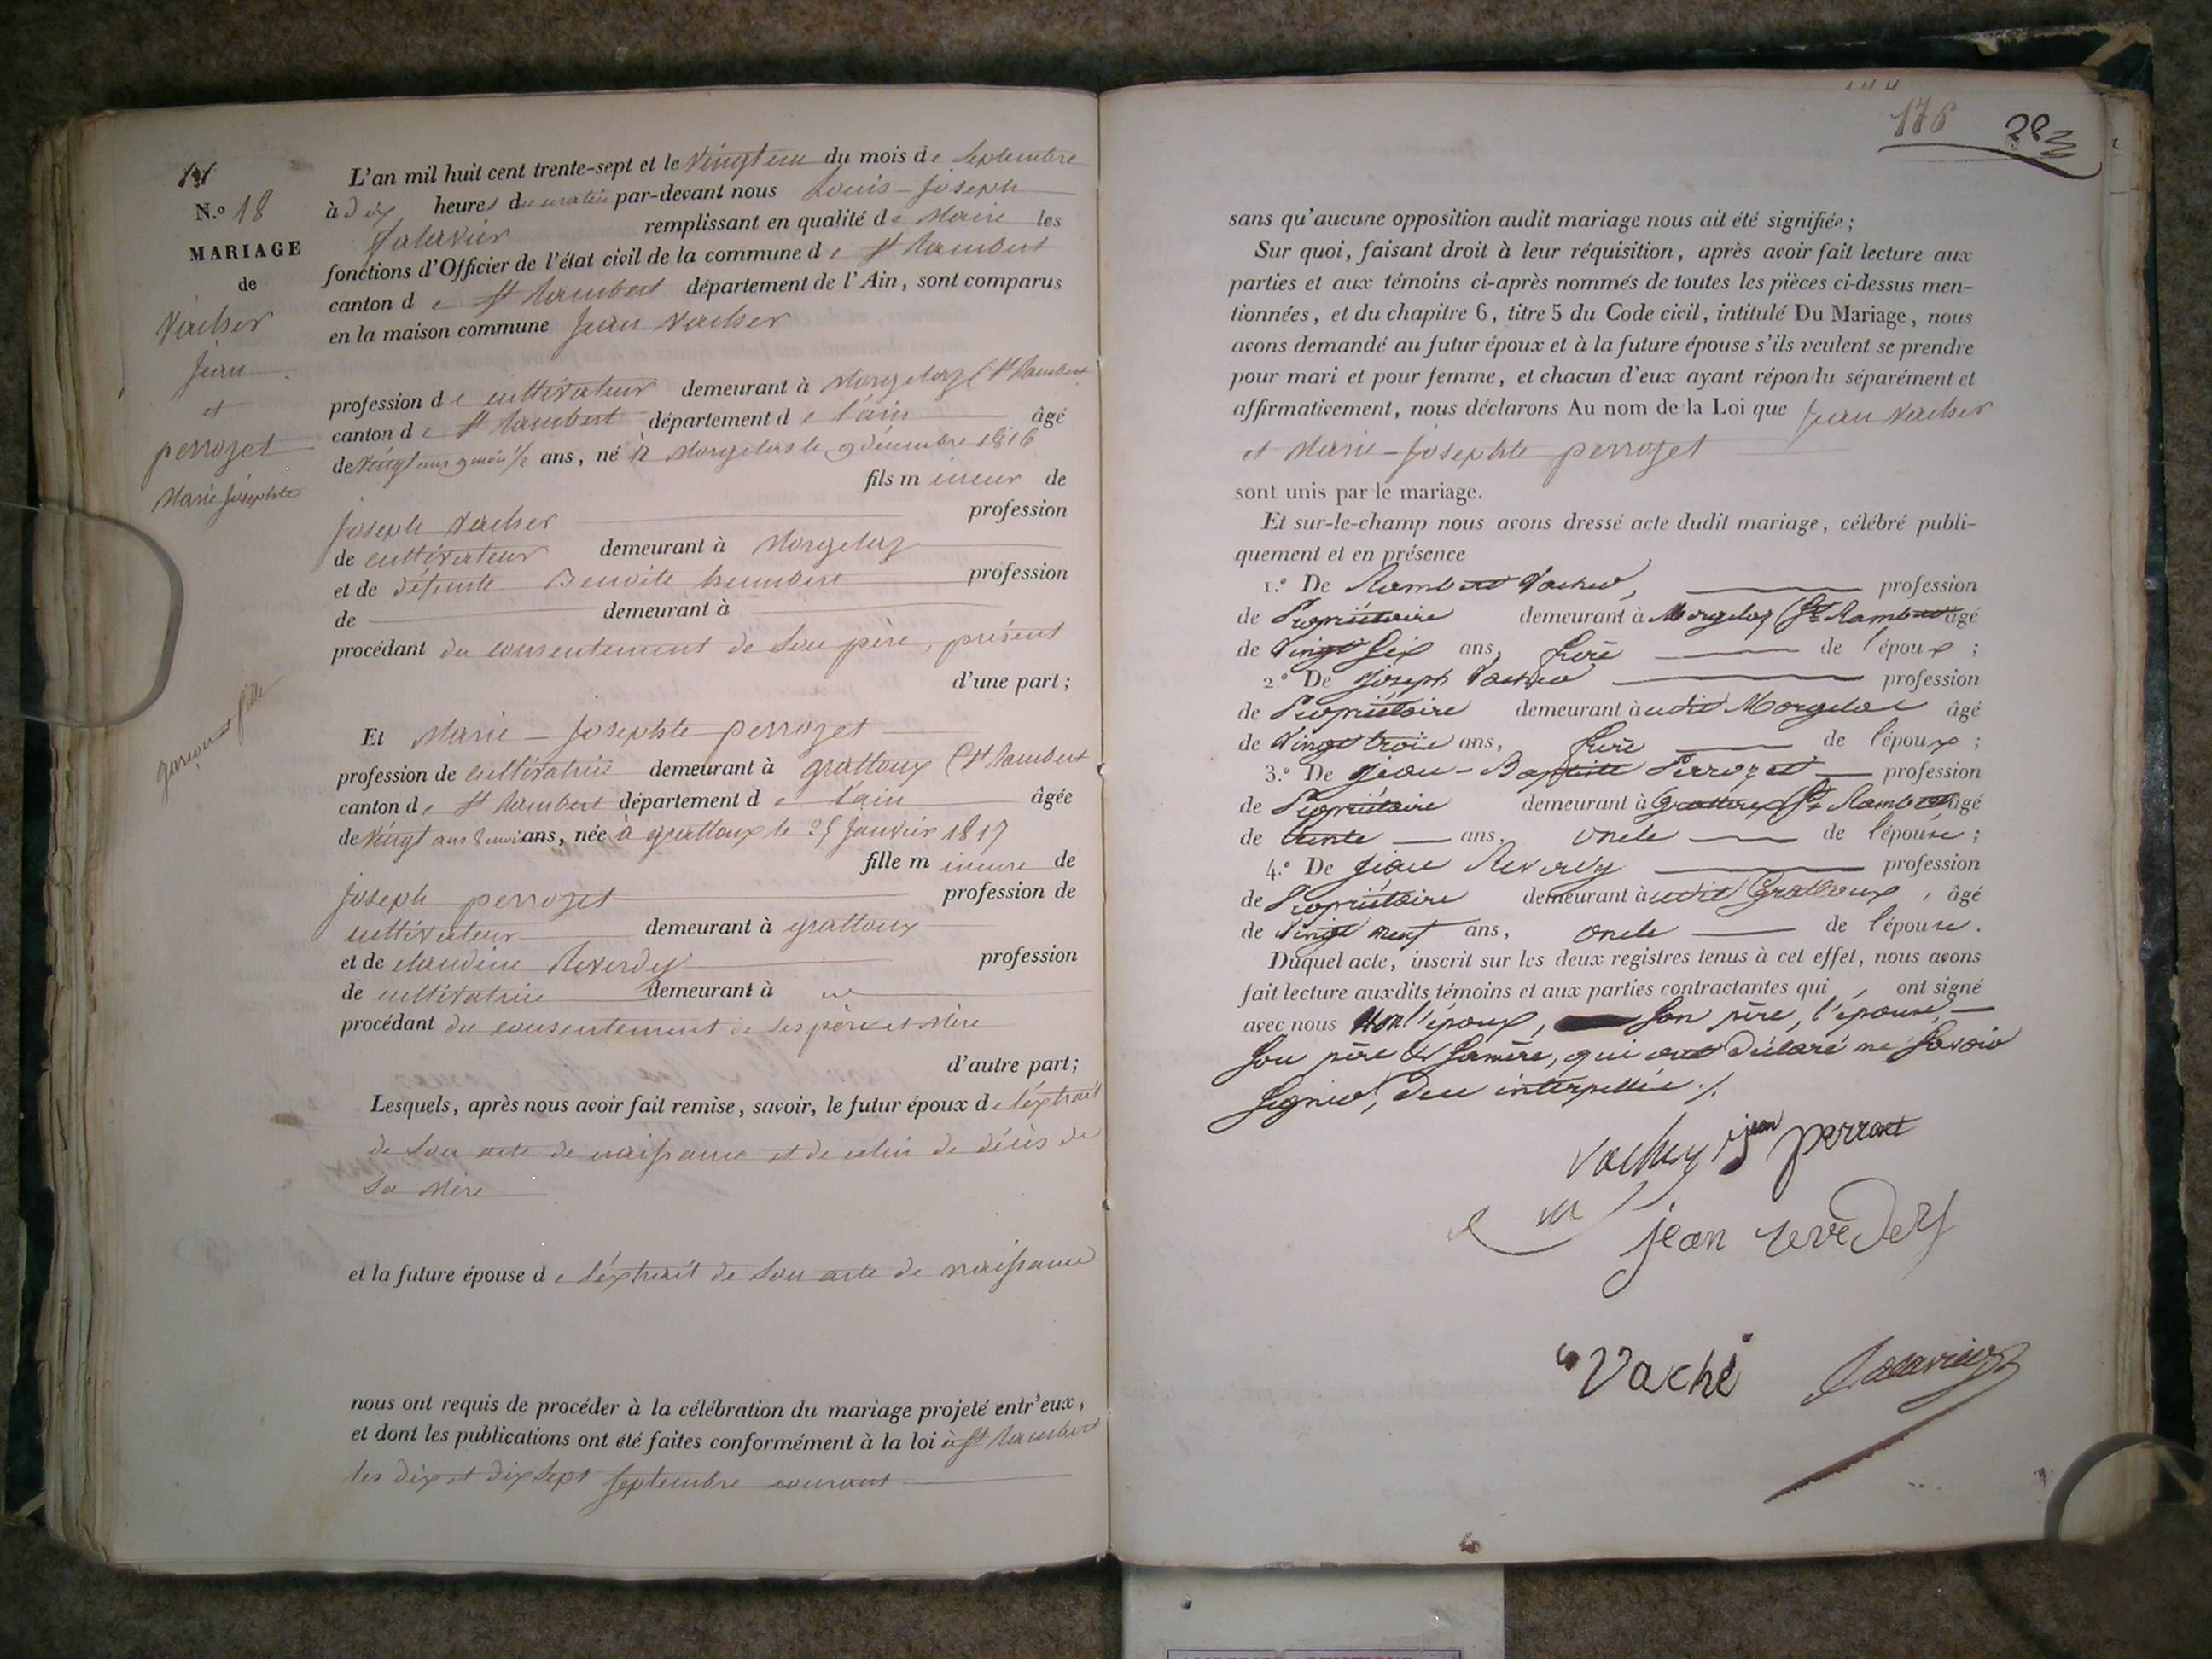 N.º 18
MARIAGE
de
Vacher
Jean
et
perrozet
Marie Josephte
garçon et fille
L'an mil huit cent trente-sept et le Vingt un du mois de Septembre
à dix heures du matin par-devant nous Louis-Joseph
remplissant en qualité de Maire les
fonctions d'Officier de l'état civil de la commune de St Rambert
canton de St Rambert département de l'Ain, sont comparus
en la maison commune Jean Vacher
profession de cultivateur demeurant à Morgelaz (St Rambert
canton de St Rambert département de l'ain âgé
de Vingt ans 9 mois 1/2 ans, né à Morgelas le 9 décembre 1816
fils mineur de
Joseph Vacher profession
de cultivateur demeurant à Morgelaz
et de défunte Benoite humbert profession
de demeurant à
procédant du consentement de son père, présent
d'une part;
Et Marie-Josephte perrozet
profession de cultivatrice demeurant à grattoux (St Rambert
canton de St Rambert département de l'ain âgée
de Vingt ans 8 mois ans, née à grattoux le 25 Janvier 1817
fille mineure de
Joseph perrozet profession de
cultivateur demeurant à grattoux
et de claudine Reverdy profession
de cultivatrice demeurant à
procédant du consentement de ses père et Mère
d'autre part;
Lesquels, après nous avoir fait remise, savoir, le futur époux de l'éxtrait
de son acte de naissance et de celui de décès de
sa Mère
et la future épouse de l'éxtrait de son acte de naissance
nous ont requis de procéder à la célébration du mariage projeté entr'eux,
et dont les publications ont été faites conformément à la loi à St Rambert
les dix et dix sept septembre courant
176
sans qu'aucune opposition audit mariage nous ait été signifiée;
Sur quoi, faisant droit à leur réquisition, après avoir fait lecture aux
parties et aux témoins ci-après nommés de toutes les pièces ci-dessus men-
tionnées, et du chapitre 6, titre 5 du Code civil, intitulé Du Mariage, nous
avons demandé au futur époux et à la future épouse s'ils veulent se prendre
pour mari et pour femme, et chacun d'eux ayant répondu séparément et
affirmativement, nous déclarons Au nom de la Loi que Jean Vacher
et Marie-Josephte perrozet
sont unis par le mariage.
Et sur-le-champ nous avons dressé acte dudit mariage, célébré publi-
quement et en présence
1.º De Rambert Vacher, profession
de Propriétaire demeurant à Morgelaz (St Rambert âgé
de Vingt Six ans, frère de l'époux;
2.º De Joseph Vacher profession
de Propriétaire demeurant à udit Morgelas âgé
de Vingt trois ans, frère de l'époux;
3.º De Jean-Baptiste Perrozet profession
de Propriétaire demeurant à Grattoux (St Rambert âgé
de trente ans, oncle de l'épouse;
4.º De Jean Reverdy profession
de Propriétaire demeurant à udit Grattoux, âgé
de Vingt neuf ans, oncle de l'épouse.
Duquel acte, inscrit sur les deux registres tenus à cet effet, nous avons
fait lecture auxdits témoins et aux parties contractantes qui ont signé
avec nous Non l'époux, son père, l'épouse,
son père & sa mère, qui ont déclaré ne savoir
signer, de ce interpellés ./.
Vacher jean perrozet
jean reverdy
Vaché